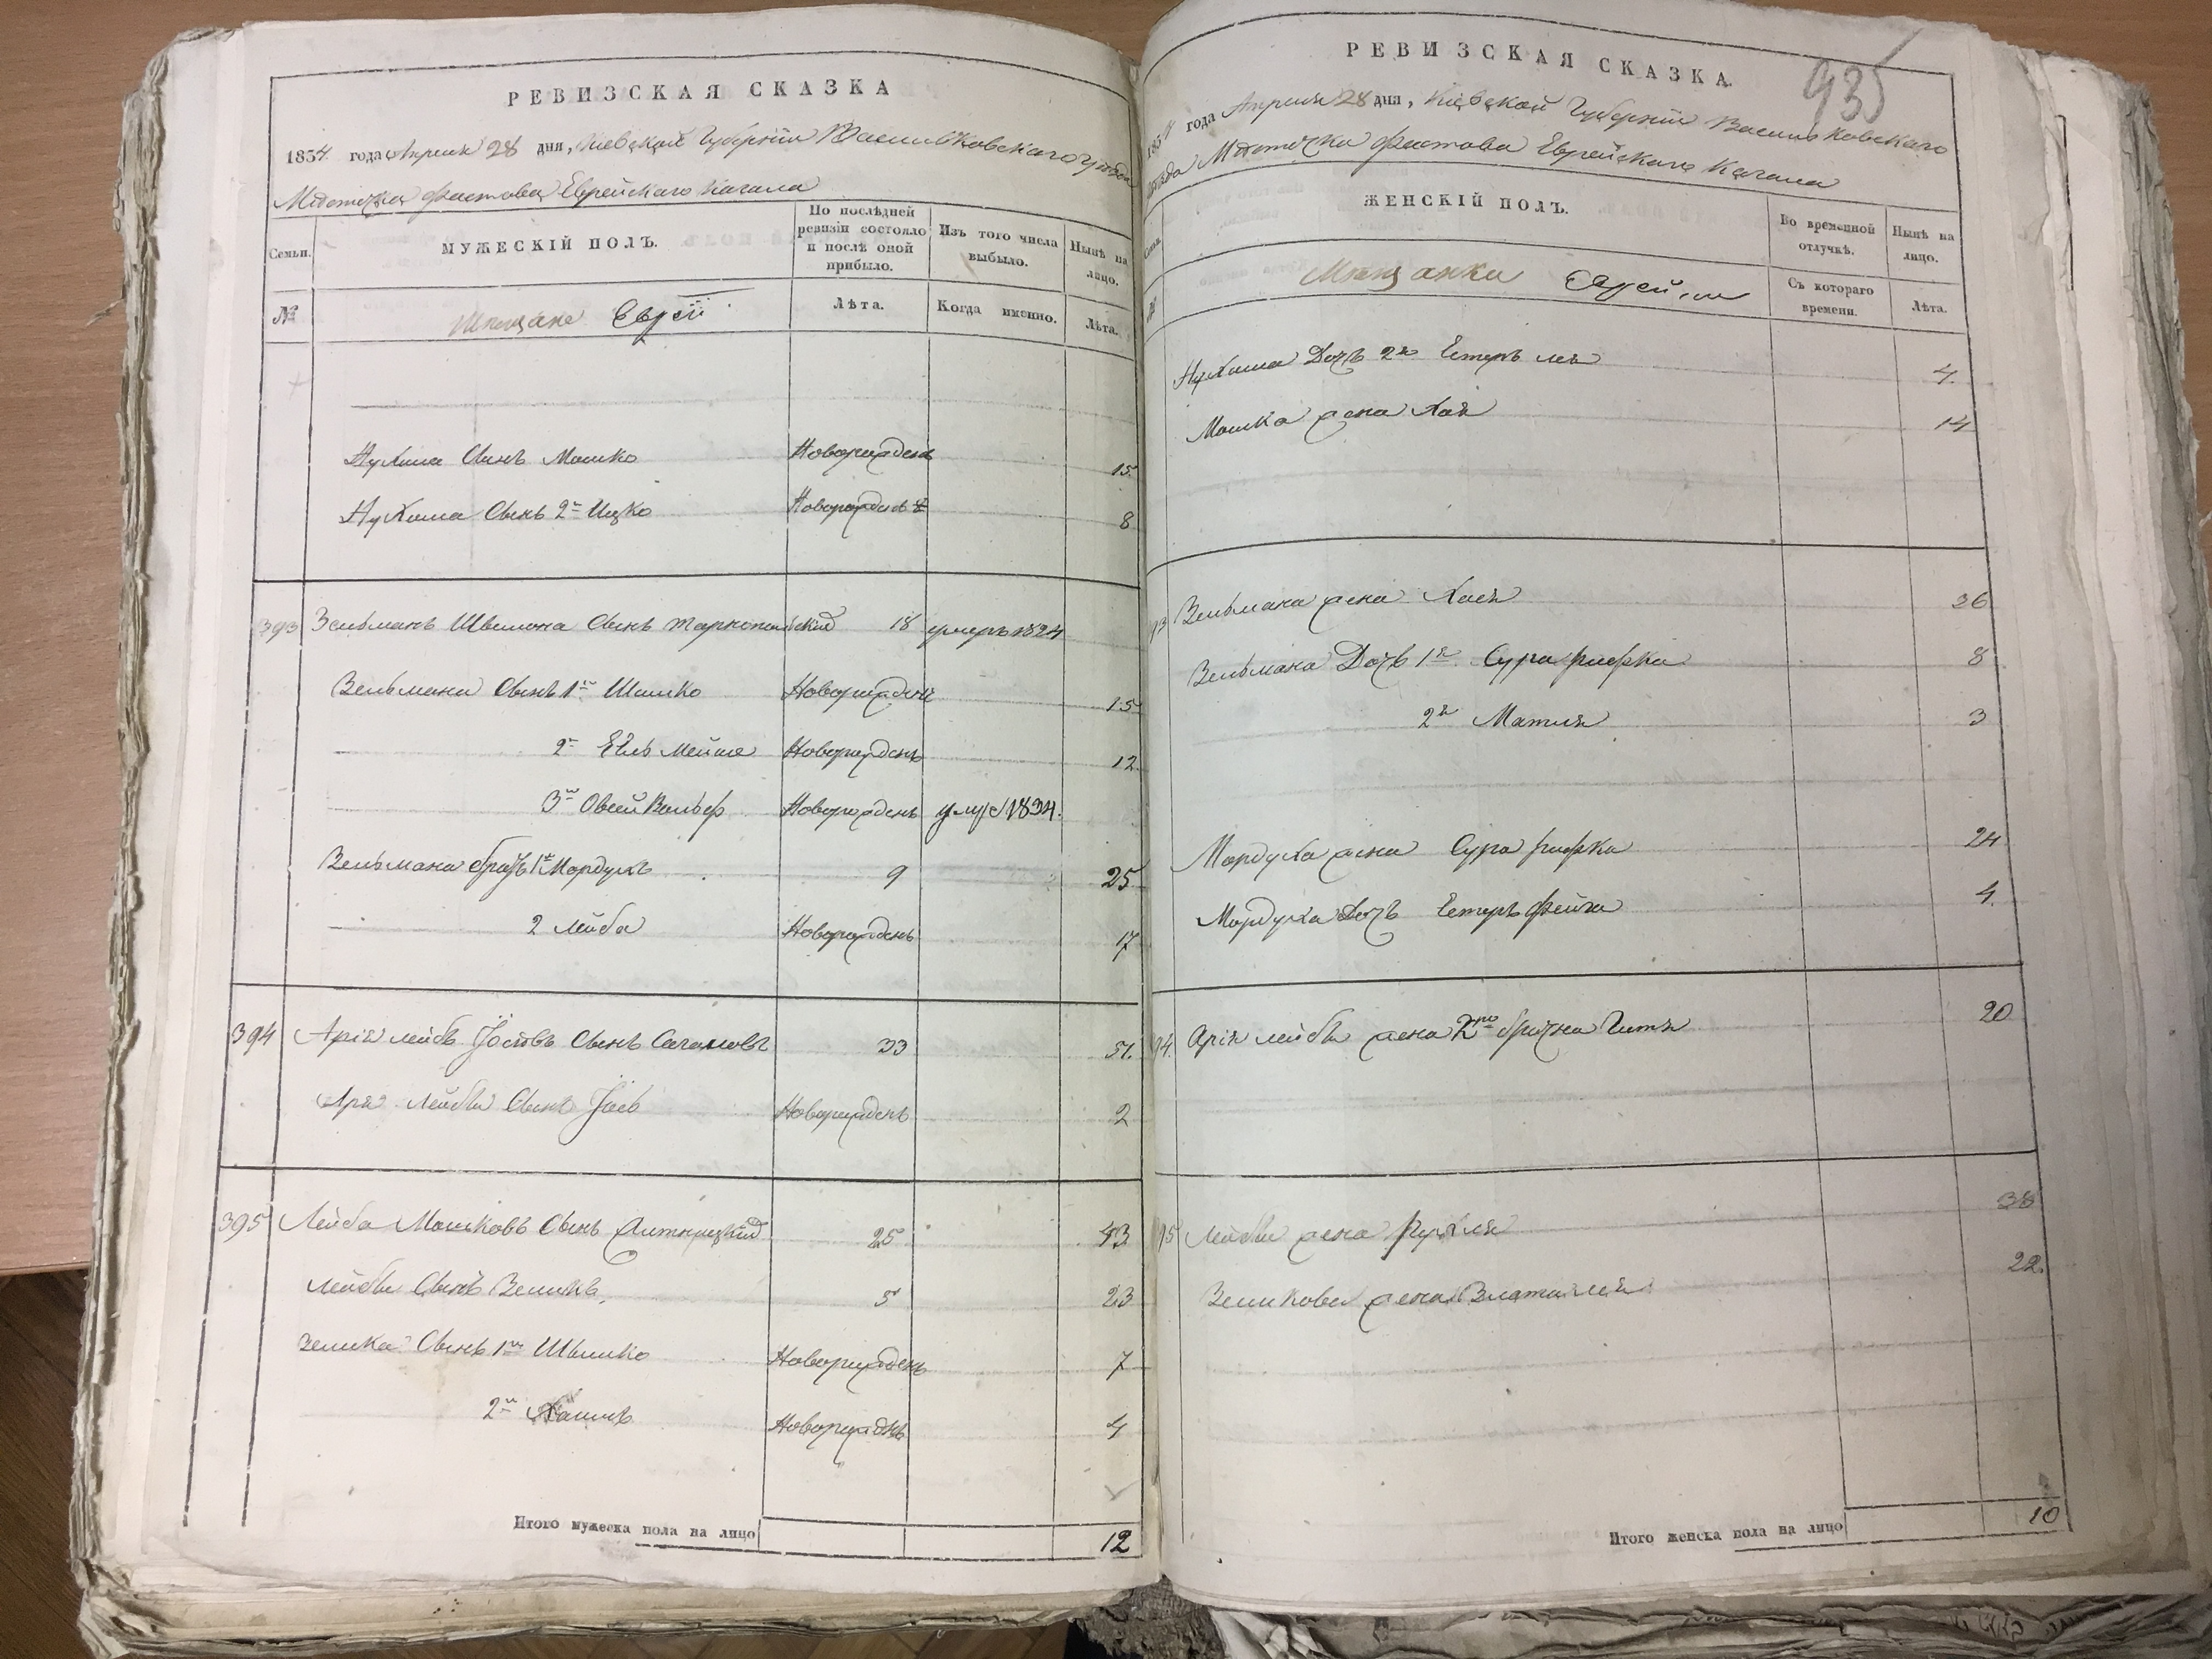 РЕВИЗСКАЯ СКАЗКА
1834 года Апреля 28 дня, Кіевской Губерніи Васильковскаго уезда
Мѣстечка Фастова Еврейскаго Кагала
Семьи.
МУЖЕСКІЙ ПОЛЪ.
По послѣдней ревизіи состояло и послѣ оной прибыло.
Изъ того числа выбыло.
Нынѣ на лицо.
№
Мещане Евреи
Лѣта.
Когда именно.
Лѣта.
Нухима Сынъ Мошко Новорожденъ 15.
Нухима Сынъ 2й Ицко Новорожденъ 8
393 Зельманъ Шлиома Сынъ 18 умеръ 1824
Зельмана Сынъ 1й Шмилко Новорожденъ 15
2й Ейль Мейше Новорожденъ 12.
3й Овсей Вольф Новорожденъ умре 1834.
Зельмана братъ 1й Мордухъ 9 25
2 Лейба Новорожденъ 17
394 Арія Лейбъ Іосіовъ Сынъ 33 51.
Арія Лейбы Сынъ Іось Новорожденъ 2
395 Лейба Мошковъ Сынъ 25 43
Лейбы Сынъ Зеликъ 5 23
Зелика Сынъ 1й Шмилко Новорожденъ 7
2й Хаимъ Новорожденъ 4
Итого мужеска пола на лицо 12
935
РЕВИЗСКАЯ СКАЗКА.
1834 года Апреля 28 дня, Кіевской Губерніи Васильковскаго
уезда Мѣстечка Фастова Еврейскаго Кагала
Семьи
ЖЕНСКІЙ ПОЛЪ.
Во временной отлучкѣ.
Нынѣ на лицо.
№
Мещанки Еврейки
Съ котораго времени.
Лѣта.
Нухима Дочь 2я Естеръ лея 4.
Мошка жена Хая 14
93 Зельмана жена Хася 36
Зельмана Дочь 1я Сура рифка 8
2я Матля 3
Мордуха жена Сура рифка 24
Мордуха Дочь Естеръ фейга 4.
94. Арія Лейбы жена 2го брачна Гитя 20
95 Лейбы жена Рухля 38
Зеликова жена Злата лея 22.
Итого женска пола на лицо 10